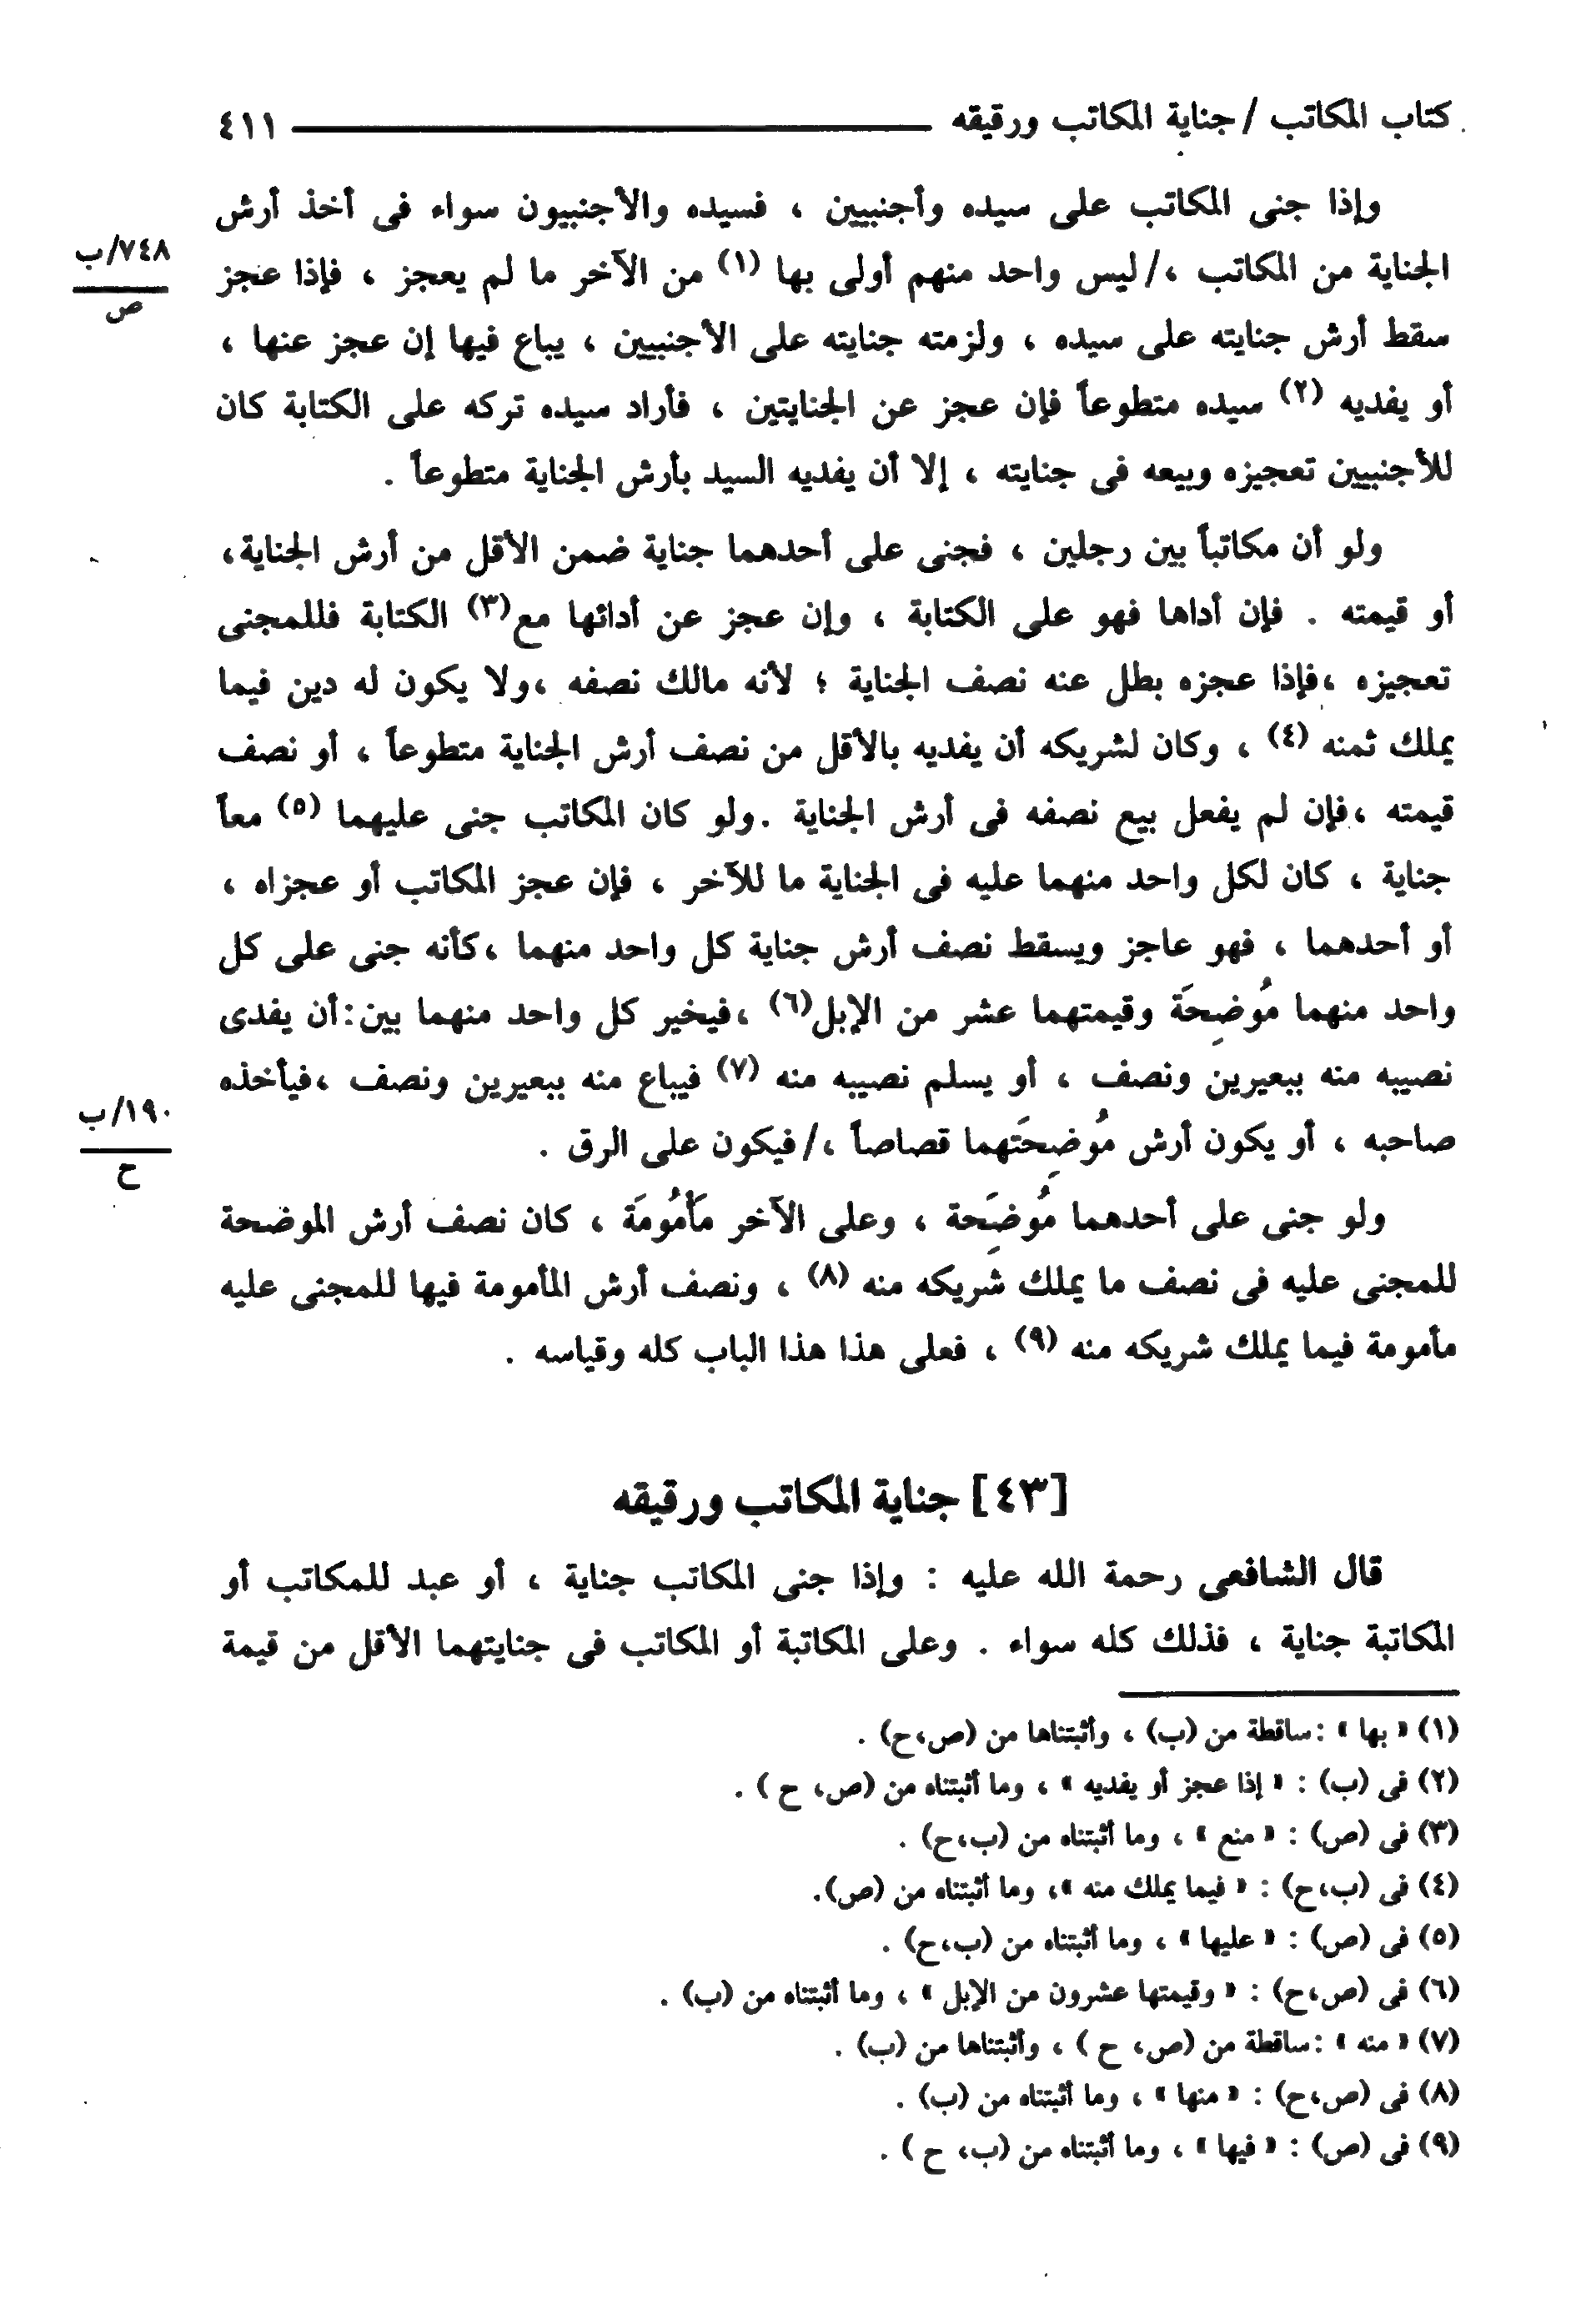 كتاب المكاتب / جناية المكاتب ورقيقه ٤١١
وإذا جنى المكاتب على سيده وأجنبيين ، فسيده والأجنبيون سواء فى أخذ أرش
٧٤٨/ب
ص
الجناية من المكاتب ،/ ليس واحد منهم أولى بها (١) من الآخر ما لم يعجز ، فإذا عجز
سقط أرش جنايته على سيده ، ولزمته جنايته على الأجنبيين ، يباع فيها إن عجز عنها ،
أو يفديه (٢) سيده متطوعاً فإن عجز عن الجنايتين ، فأراد سيده تركه على الكتابة كان
للأجنبيين تعجيزه وبيعه فى جنايته ، إلا أن يفديه السيد بأرش الجناية متطوعاً .
ولو أن مكاتباً بين رجلين ، فجنى على أحدهما جناية ضمن الأقل من أرش الجناية،
أو قيمته . فإن أداها فهو على الكتابة ، وإن عجز عن أدائها مع(٣) الكتابة فللمجنى
تعجيزه ،فإذا عجزه بطل عنه نصف الجناية ؛ لأنه مالك نصفه ،ولا يكون له دين فيما
يملك ثمنه (٤) ، وكان لشريكه أن يفديه بالأقل من نصف أرش الجناية متطوعاً ، أو نصف
قيمته ،فإن لم يفعل بيع نصفه فى أرش الجناية .ولو كان المكاتب جنى عليهما (٥) معاً
جناية ، كان لكل واحد منهما عليه فى الجناية ما للآخر ، فإن عجز المكاتب أو عجزاه ،
أو أحدهما ، فهو عاجز ويسقط نصف أرش جناية كل واحد منهما ،كأنه جنى على كل
واحد منهما مُوضِحَة وقيمتهما عشر من الإبل(٦) ،فيخير كل واحد منهما بين:أن يفدى
نصيبه منه ببعيرين ونصف ، أو يسلم نصيبه منه (٧) فيباع منه ببعيرين ونصف ،فيأخذه
١٩٠/ب
ح
صاحبه ، أو يكون أرش مُوضِحَتهما قصاصاً ،/ فيكون على الرق .
ولو جنى على أحدهما مُوضِحَة ، وعلى الآخر مَأْمُومَة ، كان نصف أرش الموضحة
للمجنى عليه فى نصف ما يملك شريكه منه (٨) ، ونصف أرش المأمومة فيها للمجنى عليه
مأمومة فيما يملك شريكه منه (٩) ، فعلى هذا هذا الباب كله وقياسه .
[٤٣] جناية المكاتب ورقيقه
قال الشافعى رحمة الله عليه : وإذا جنى المكاتب جناية ، أو عبد للمكاتب أو
المكاتبة جناية ، فذلك كله سواء . وعلى المكاتبة أو المكاتب فى جنايتهما الأقل من قيمة
(١) « بها » :ساقطة من (ب) ، وأثبتناها من (ص،ح) .
(٢) فى (ب) : « إذا عجز أو يفديه » ، وما أثبتناه من (ص، ح ) .
(٣) فى (ص) : « منع » ، وما أثبتناه من (ب،ح) .
(٤) فى (ب،ح) : « فيما يملك منه »، وما أثبتناه من (ص).
(٥) فى (ص) : « عليها » ، وما أثبتناه من (ب،ح) .
(٦) فى (ص،ح) : « وقيمتها عشرون من الإبل » ، وما أثبتناه من (ب) .
(٧) « منه » :ساقطة من (ص، ح ) ، وأثبتناها من (ب) .
(٨) فى (ص،ح) : « منها » ، وما أثبتناه من (ب) .
(٩) فى (ص) : « فيها » ، وما أثبتناه من (ب، ح ) .